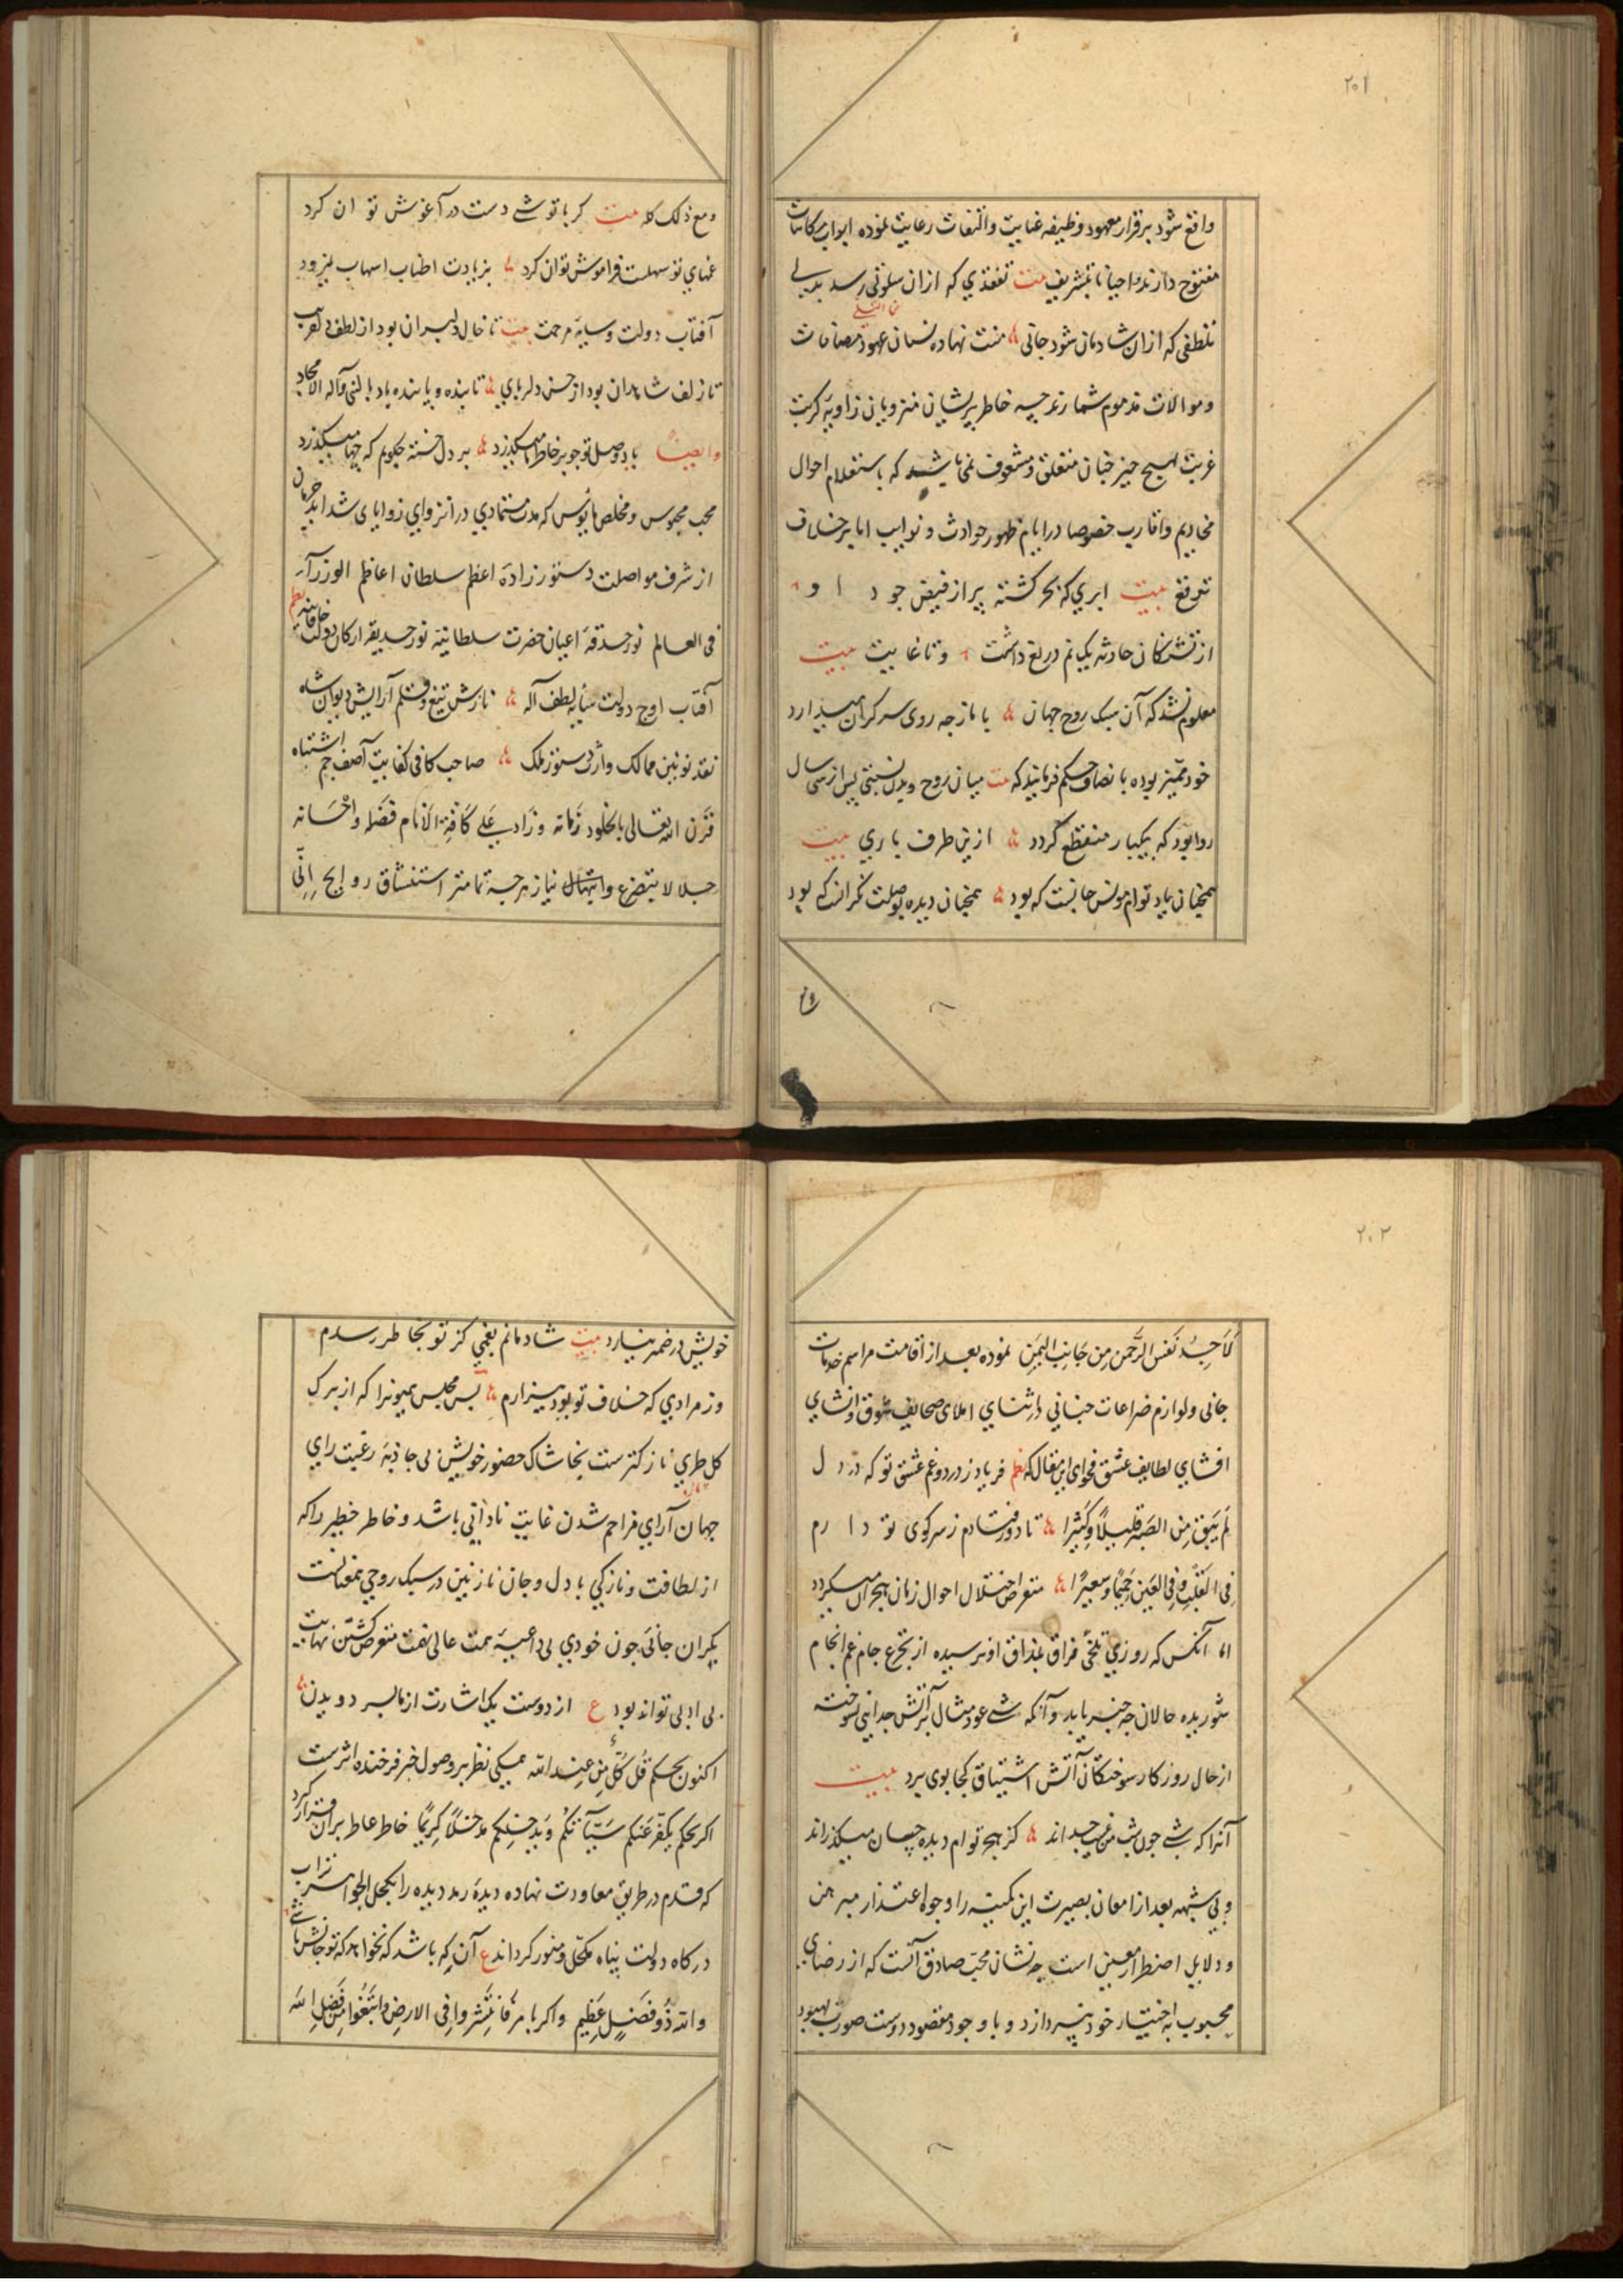 ۲۰۱
واقع شود برقرار معهود وظیفه عنایت والتفات رعایت نموده ابواب مکاتبات
مفتوح دارند و احیانا بتشریف بیت تفقدی که ازان سلوتی رسد بدلی
تلطفی که ازان شادمان شود جانی منت نهاده نسیان عهود مصافات
وموالات مذموم شمارند چه خاطر پریشان منزویان زاویه کربت
غربت بهیچ چیز چنان متعلق و مشعوف نمی باشد که باستعلام احوال
مخادیم واقارب خصوصا در ایام ظهور حوادث و نوایب اما برخلاف
توقع بیت ابری که بحر کشته پر از فیض جود او
از تشنکان حادثه یک نم دریغ داشت و تا غایت بیت
معلوم نشد که آن سبک روح جهان با ما ز چه روی سر کران میدارد
خود ممیز بوده بانصاف حکم فرمایند که بیت میان روح و بدن نسبتی پس از سی سال
روا بود که بیکبار منقطع گردد ازین طرف باری بیت
همچنان یاد توام مونس جانست که بود همچنان دیده بوصلت نکرانست که بود
ومع ذلک کله بیت کر با تو شبی دست در آغوش توان کرد
غمهای تو سهلست فراموش توان کرد بزیادت اطناب اسهاب نمیرود
آفتاب دولت و سایه مرحمت بیت تا خال دلبران بود از لطف دلفریب
تا زلف شاهدان بود از حسن دلربای تابنده و پاینده باد بالنبی وآله الامجاد
وایضا یاد وصل تو چو بر خاطر ما میکذرد بر دل خسته چکویم که چها میکذرد
محب محبوس و مخلص مایوس که مدت متمادی در انزوای زوایای شداید حرمان
از شرف مواصلت دستور زاده اعظم سلطان اعاظم الوزرآء
فی العالم نور حدقه اعیان حضرت سلطانیه نور حدیقه ارکان دولت خاقانیه نظم
آفتاب اوج دولت سایه لطف آله نازش تیغ و قلم آرایش دیوان شاه
نقد نوئین ممالک وارث دستور ملک صاحب کافی کفایت آصف جم اشتباه
قرن الله تعالی بالخلود زمانه وزاد علی کافة الانام فضله واحسانه
جلالا بتضرع وابتهال نیاز هرچه تمامتر استنشاق روایح اِنّی
۲۰۲
لَاَجِدُ نَفَسَ الرَّحمنِ مِن جَانِبِ الیَمَنِ نموده بعد از اقامت مراسم خدمات
جانی ولوازم ضراعات جنانی در اثنای املای صحایف شوق وانشای
افشای لطایف عشق فحوای این مقال که نظم فریاد ز درد و غم عشق تو که در دل
لَم یَبقَ مِنَ الصَبرِ قَلیلًا وَکَثیرًا تا دور فتادم ز سر کوی تو دارم
فِی القَلبِ وَفِی العَینِ جَحیمًا وَسَعیرًا متعرض اختلال احوال زمان هجران میکردد
اما آنکس که روزی تلخی فراق بمذاق او نرسیده از تجرع جام غم انجام
شوریده حالان چه خبر یابد و آنکه شبی عود مثال بر آتش جدایی نسوخته
از حال روزکار سوختکان آتش اشتیاق کجا بوی برد بیت
آنرا که شبی چون شب من غم چه داند کز هجر توام دیده چسان میکذراند
و بی شبهه بعد از امعان بصیرت این کمینه را وجوه اعتذار مبرهن
ودلایل اضطرار معین است چه نشان محب صادق آنست که از رضای
محبوب باختیار خود نپردازد و با وجود مقصود دوست صورت بهبود
خویش در ضمیر نیارد بیت شادمانم بغمی کز تو بخاطر رسدم
وز مرادی که خلاف تو بود بیزارم پس مجلس همیونرا که از برک
کل طری نازکترست بخاشاک حضور خویش بی جاذبه رغبت رای
جهان آرای مزاحم شدن غایت نادانی باشد و خاطر خطیر را که
از لطافت و نازکی با دل و جان نازنین در سبک روحی همعنانست
بکران جانی چون خودی بی داعیه همت عالی نهمت متعرض کشتن نهایت
بی ادبی تواند بود ع از دوست یک اشارت از ما بسر دویدن
اکنون بحکم قُل کُلٌّ مِن عِندِ الله همکی نظر بر وصول خبر فرخنده اثرست
اکر بحکم یُکَفِّر عَنکُم سَیِّآتِکُم وَیُدخِلکُم مُدخَلًا کَریمًا خاطر عاطر بران قرار کیرد
که قدم در طریق معاودت نهاده دیده رمد دیده را بکحل الجواهر تراب
درکاه دولت پناه مکحل و منور کرداند ع آن که باشد که نخواهد که تو جانش باشی
والله ذُو فَضلٍ عَظیمٍ واکر بامر فَانتَشِروا فِی الارضِ وَابتَغُوا مِن فَضلِ الله